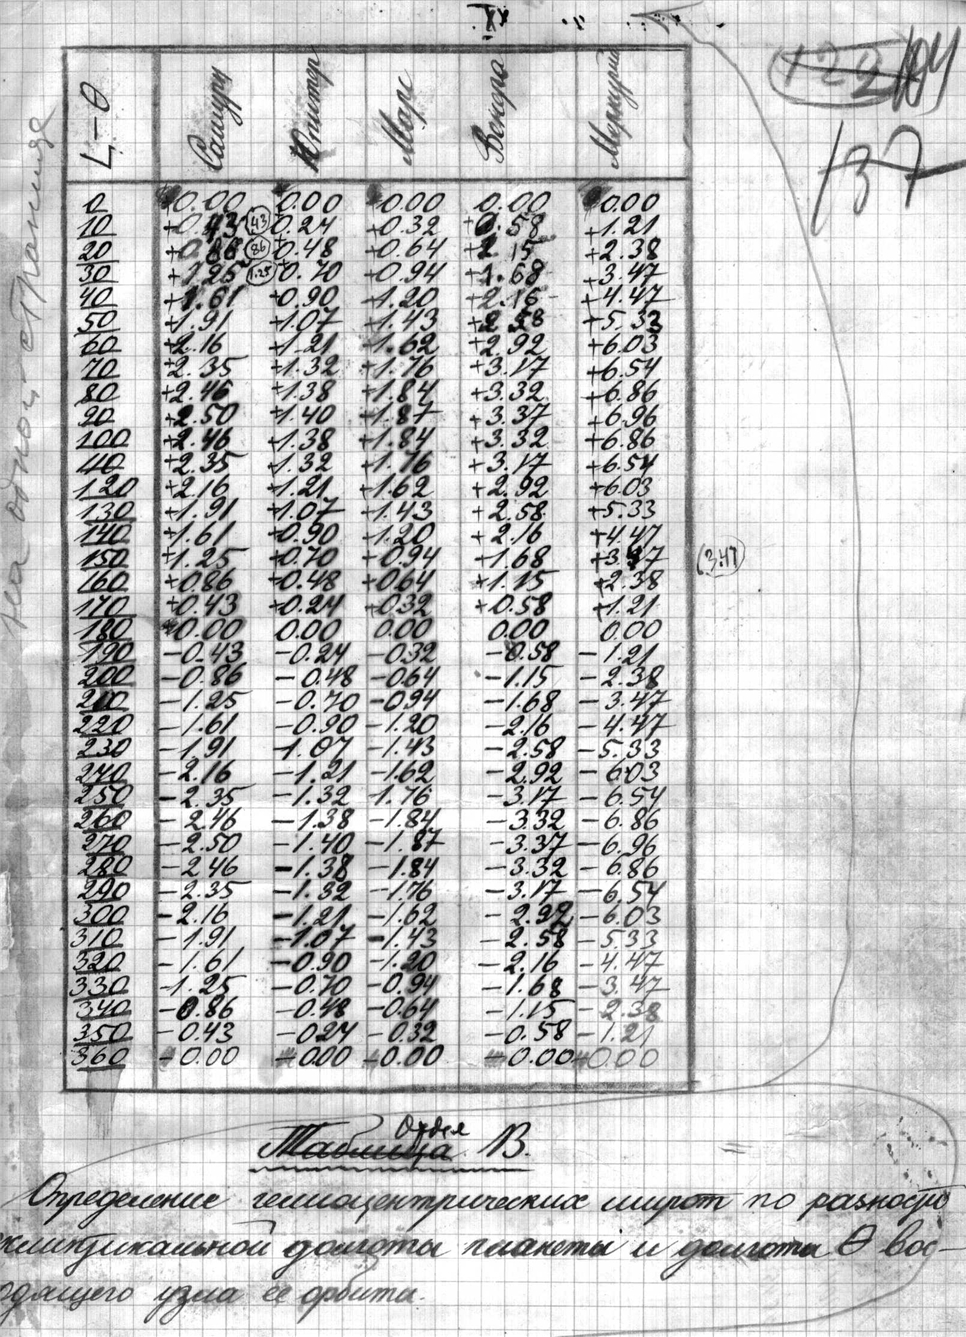 XI
~~122~~ 104
137
На одной странице
L - Θ Сатурн Юпитер Марс Венера Меркурий
0 0.00 0.00 0.00 0.00 0.00
10 +0.43 (43) 0.24 +0.32 +0.58 +1.21
20 +0.86 (86) +0.48 +0.64 +1.15 +2.38
30 +1.25 (1.25) +0.70 +0.94 +1.68 +3.47
40 +1.61 +0.90 +1.20 +2.16 +4.47
50 +1.91 +1.07 +1.43 +2.58 +5.33
60 +2.16 +1.21 +1.62 +2.92 +6.03
70 +2.35 +1.32 +1.76 +3.17 +6.54
80 +2.46 +1.38 +1.84 +3.32 +6.86
90 +2.50 +1.40 +1.87 +3.37 +6.96
100 +2.46 +1.38 +1.84 +3.32 +6.86
110 +2.35 +1.32 +1.76 +3.17 +6.54
120 +2.16 +1.21 +1.62 +2.92 +6.03
130 +1.91 +1.07 +1.43 +2.58 +5.33
140 +1.61 +0.90 1.20 +2.16 +4.47
150 +1.25 +0.70 +0.94 +1.68 +3.47 (3.47)
160 +0.86 +0.48 +0.64 +1.15 +2.38
170 +0.43 +0.24 +0.32 +0.58 +1.21
180 0.00 0.00 0.00 0.00 0.00
190 -0.43 -0.24 -0.32 -0.58 -1.21
200 -0.86 -0.48 -0.64 -1.15 -2.38
210 -1.25 -0.70 -0.94 -1.68 -3.47
220 -1.61 -0.90 -1.20 -2.16 -4.47
230 -1.91 -1.07 -1.43 -2.58 -5.33
240 -2.16 -1.21 -1.62 -2.92 -6.03
250 -2.35 -1.32 -1.76 -3.17 -6.54
260 -2.46 -1.38 -1.84 -3.32 -6.86
270 -2.50 -1.40 -1.87 -3.37 -6.96
280 -2.46 -1.38 -1.84 -3.32 -6.86
290 -2.35 -1.32 -1.76 -3.17 -6.54
300 -2.16 -1.21 -1.62 -2.92 -6.03
310 -1.91 -1.07 -1.43 -2.58 -5.33
320 -1.61 -0.90 -1.20 -2.16 -4.47
330 -1.25 -0.70 -0.94 -1.68 -3.47
340 -0.86 -0.48 -0.64 -1.15 -2.38
350 -0.43 -0.24 -0.32 -0.58 -1.21
360 0.00 0.00 0.00 0.00 0.00
Отдел
~~Таблица~~ В.
Определение гелиоцентрических широт по разности
клиптикальной долготы планеты и долготы Θ вос-
одящего узла ее орбиты.